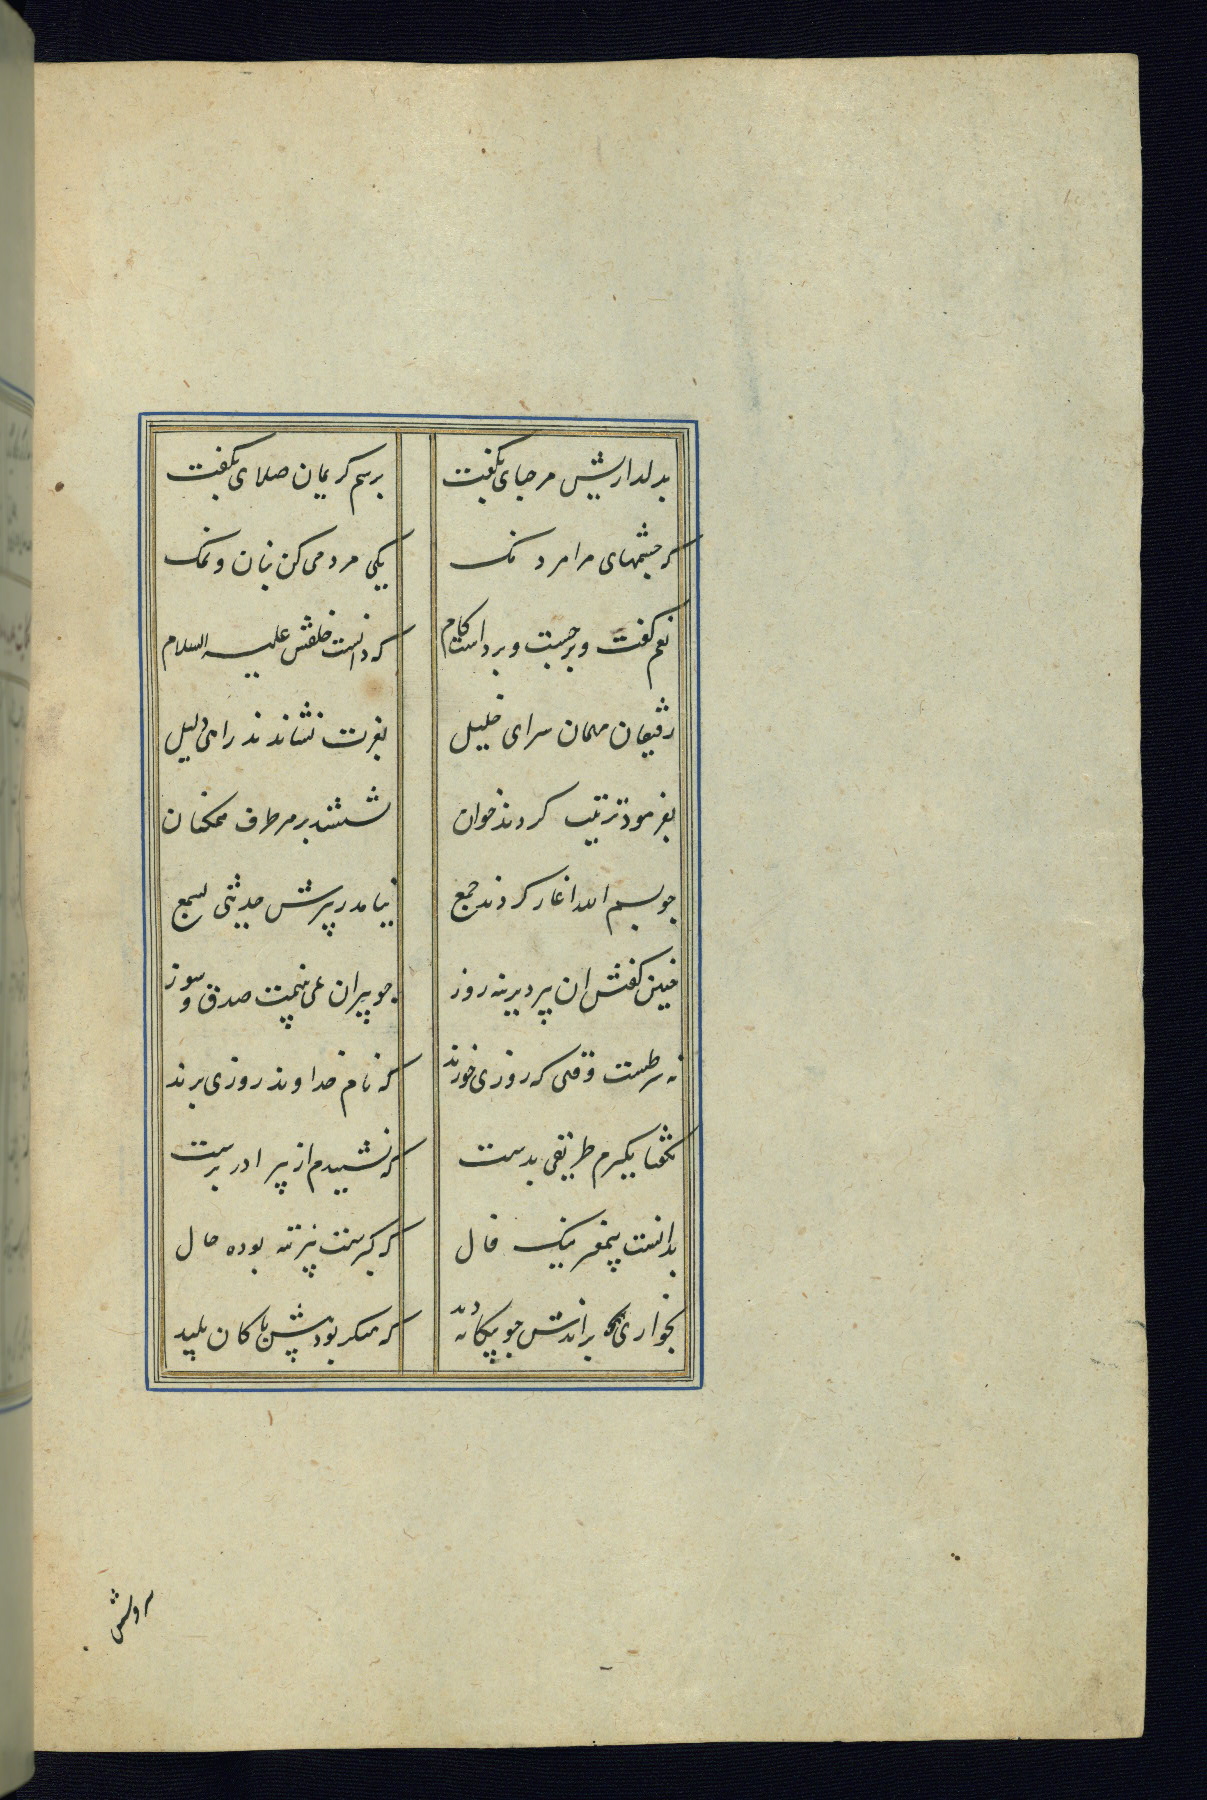 بدلداریش مرحبای بگفت برسم کریمان صلای بگفت
که چشمهای مرا مردمک یکی مردمی کن بنان و نمک
نعم گفت و برجست و برداشت کام که دانست خلقش علیه السلام
رقیبان مهمان سرای خلیل بعزت نشاندند مرد ذلیل
بفرمود ترتیب کردند خوان نشستند بر هر طرف همکنان
چو بسم الله اغاز کردند جمع نیامد ز پیرش حدیثی بسمع
چنین کفتش ان پیر دیرینه روز چو پیران نمی بینمت صدق و سوز
نه شرطست وقتی که روزی خورند که نام خداوند روزی برند
بگفتا نگیرم طریقی بدست که نشنیدم از پیر اذرپرست
بدانست پیغمبر نیک فال که گبرست پیر تبه بوده حال
بخواری براندش چو بیگانه دید که منکر بود پیش پاکان پلید
سروش